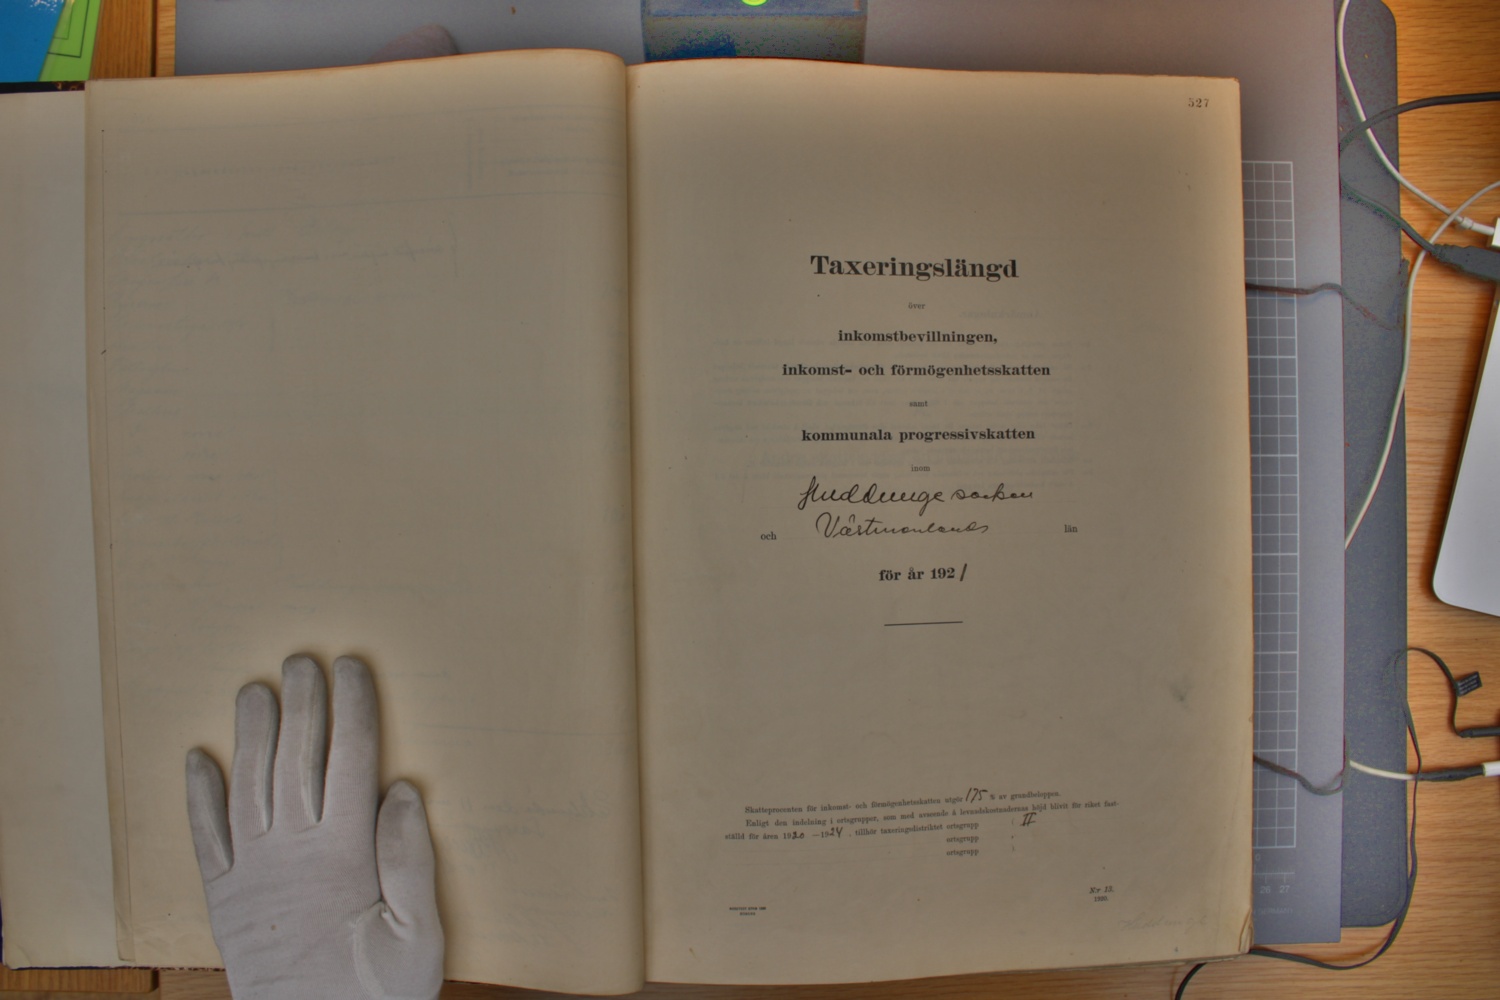 527
Taxeringslängd
över
inkomstbevillningen,
inkomst- och förmögenhetsskatten
samt
kommunala progressivskatten
inom
Huddunge socken
och Västmanlands län
för år 1921
Skatteprocenten för inkomst- och förmögenhetsskatten utgör 175 % av grundbeloppen.
Enligt den indelning i ortsgrupper, som med avseende å levnadskostnadernas höjd blivit för riket fast-
ställd för åren 1920 —1924 , tillhör taxeringsdistriktet ortsgrupp II
ortsgrupp
ortsgrupp
N:r 13.
1920.
26 27